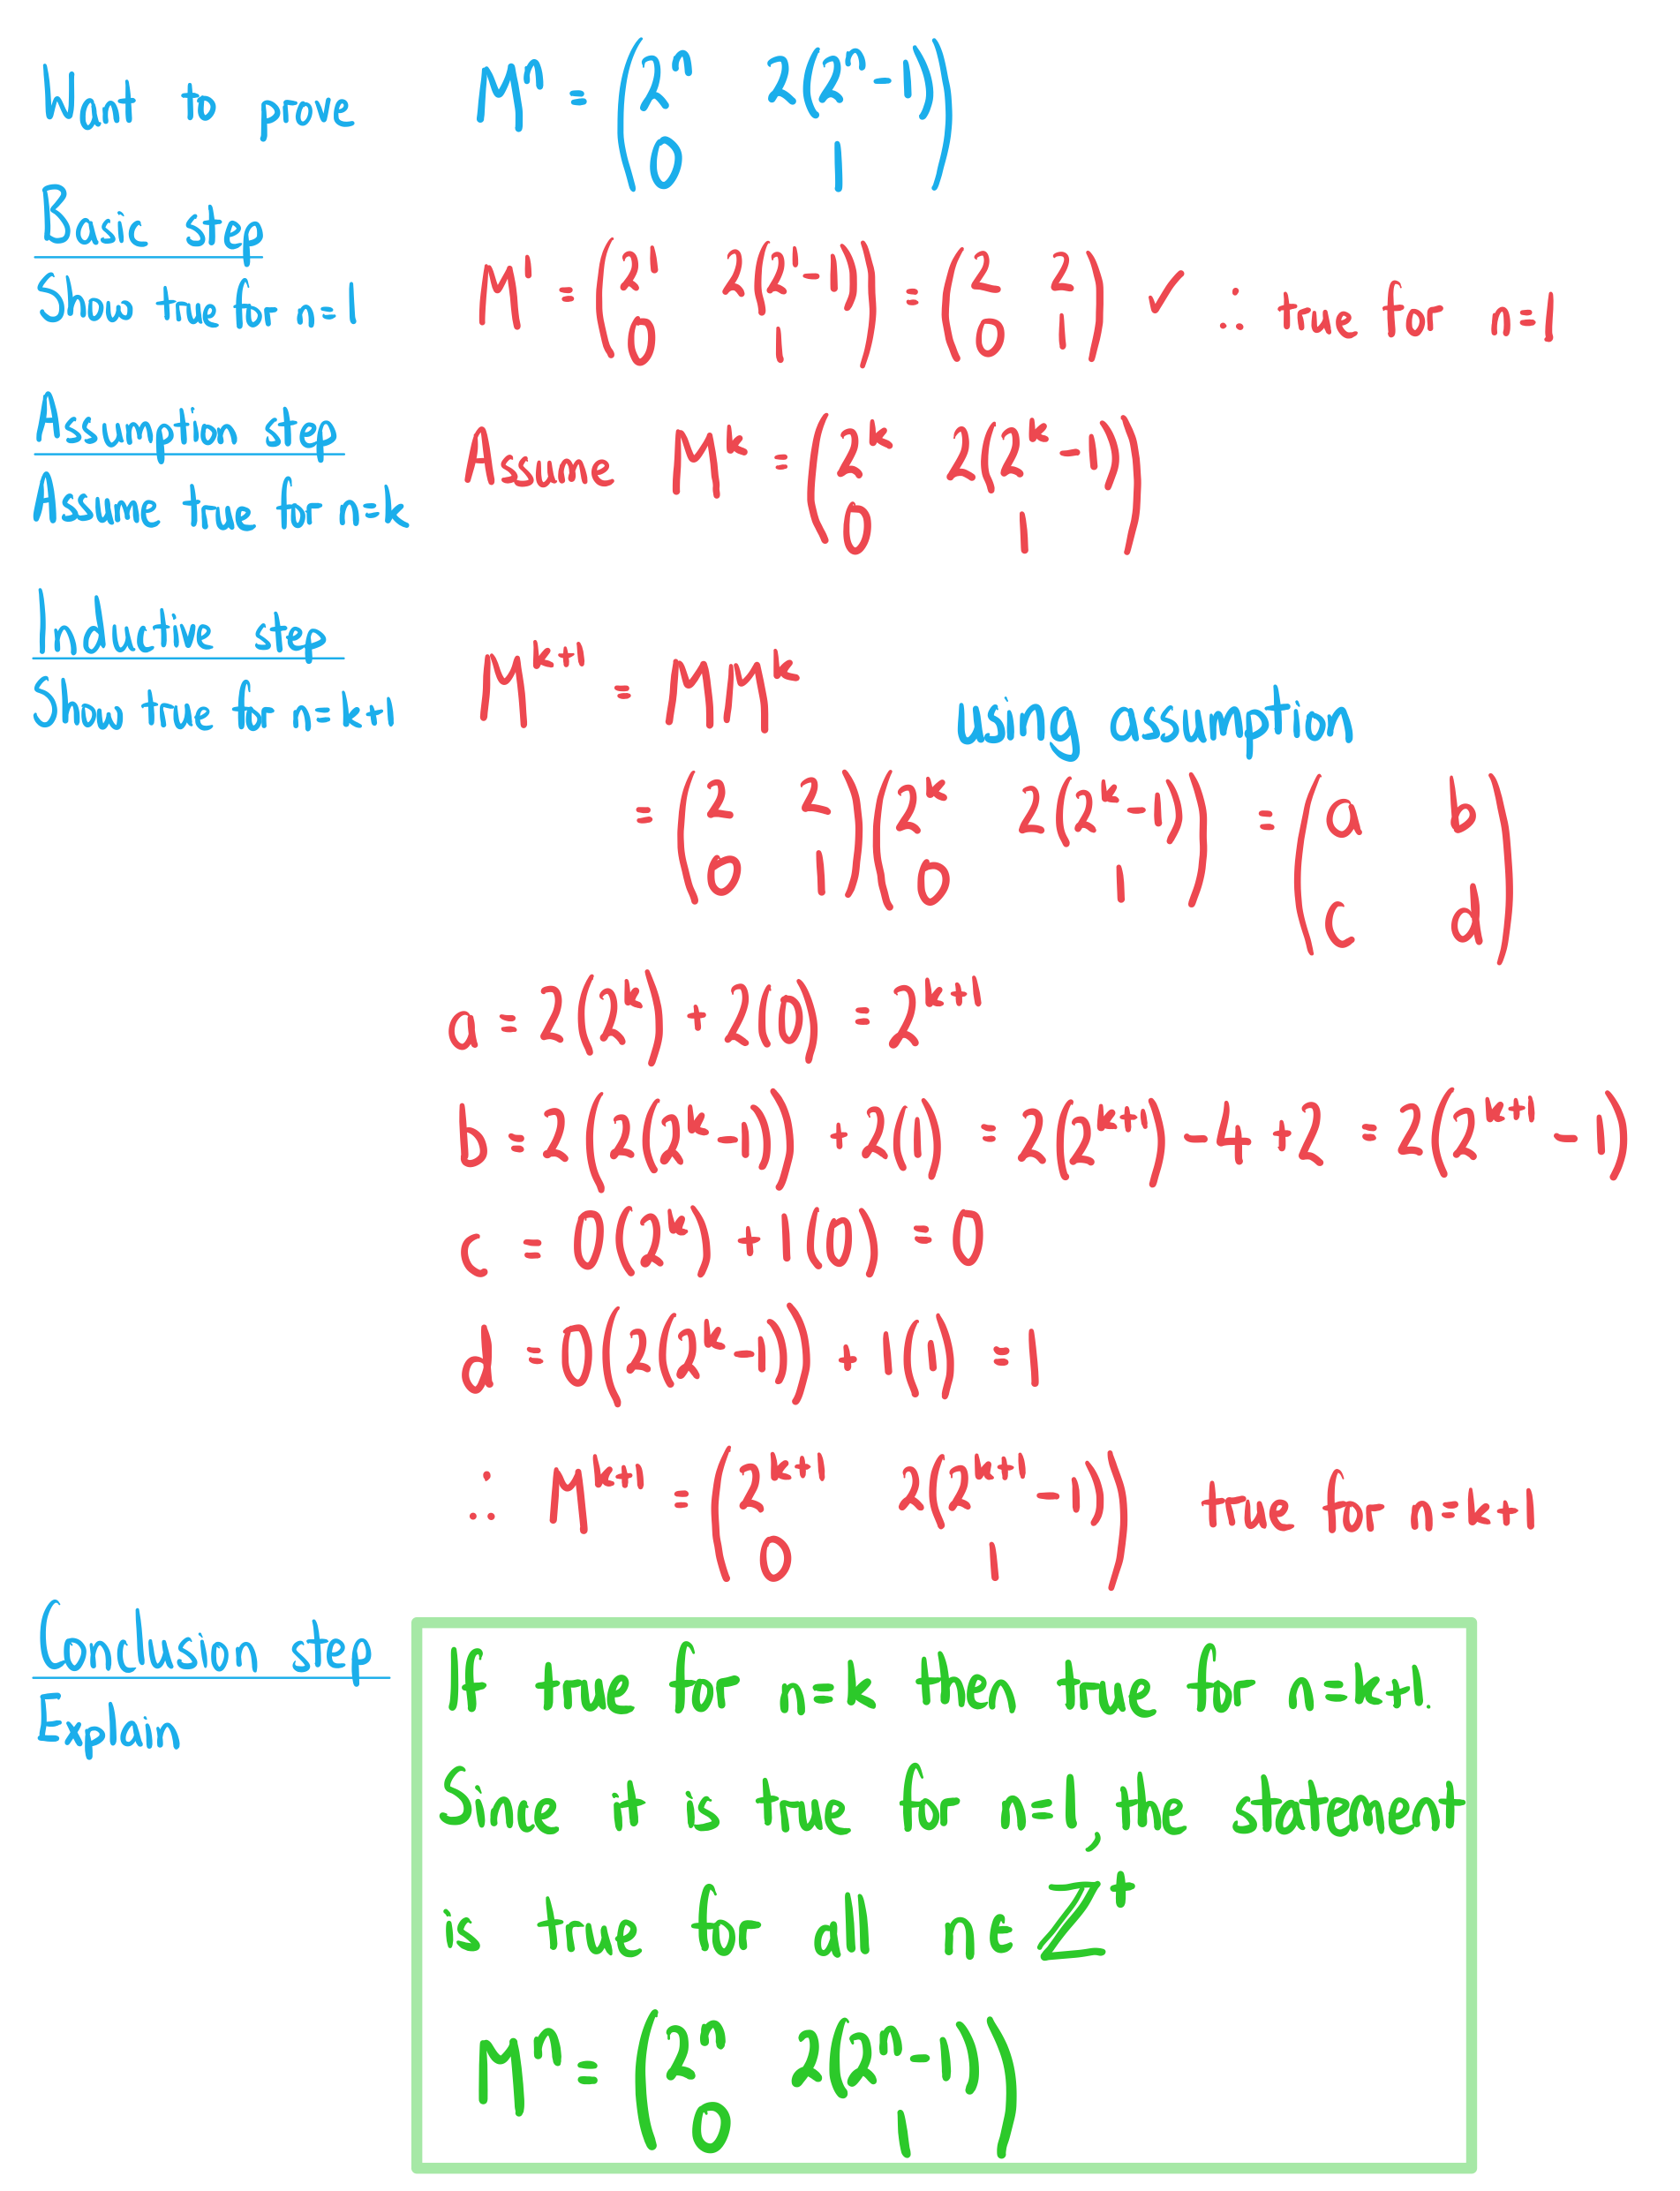 Want to prove M^n = (2^n 2(2^n-1)
0 1)
Basic step
Show true for n=1 M^1 = (2^1 2(2^1-1)
0 1) = (2 2
0 1) ✓ ∴ true for n=1
Assumption step
Assume true for n=k Assume M^k = (2^k 2(2^k-1)
0 1)
Inductive step
Show true for n=k+1 M^(k+1) = MM^k
using assumption
= (2 2
0 1)(2^k 2(2^k-1)
0 1) = (a b
c d)
a = 2(2^k) + 2(0) = 2^(k+1)
b = 2(2(2^k-1)) + 2(1) = 2(2^(k+1)) - 4 + 2 = 2(2^(k+1) - 1)
c = 0(2^k) + 1(0) = 0
d = 0(2(2^k-1)) + 1(1) = 1
∴ M^(k+1) = (2^(k+1) 2(2^(k+1) - 1)
0 1) true for n=k+1
Conclusion step
Explain
If true for n=k then true for n=k+1.
Since it is true for n=1, the statement
is true for all n∈ ℤ^+
M^n = (2^n 2(2^n-1)
0 1)